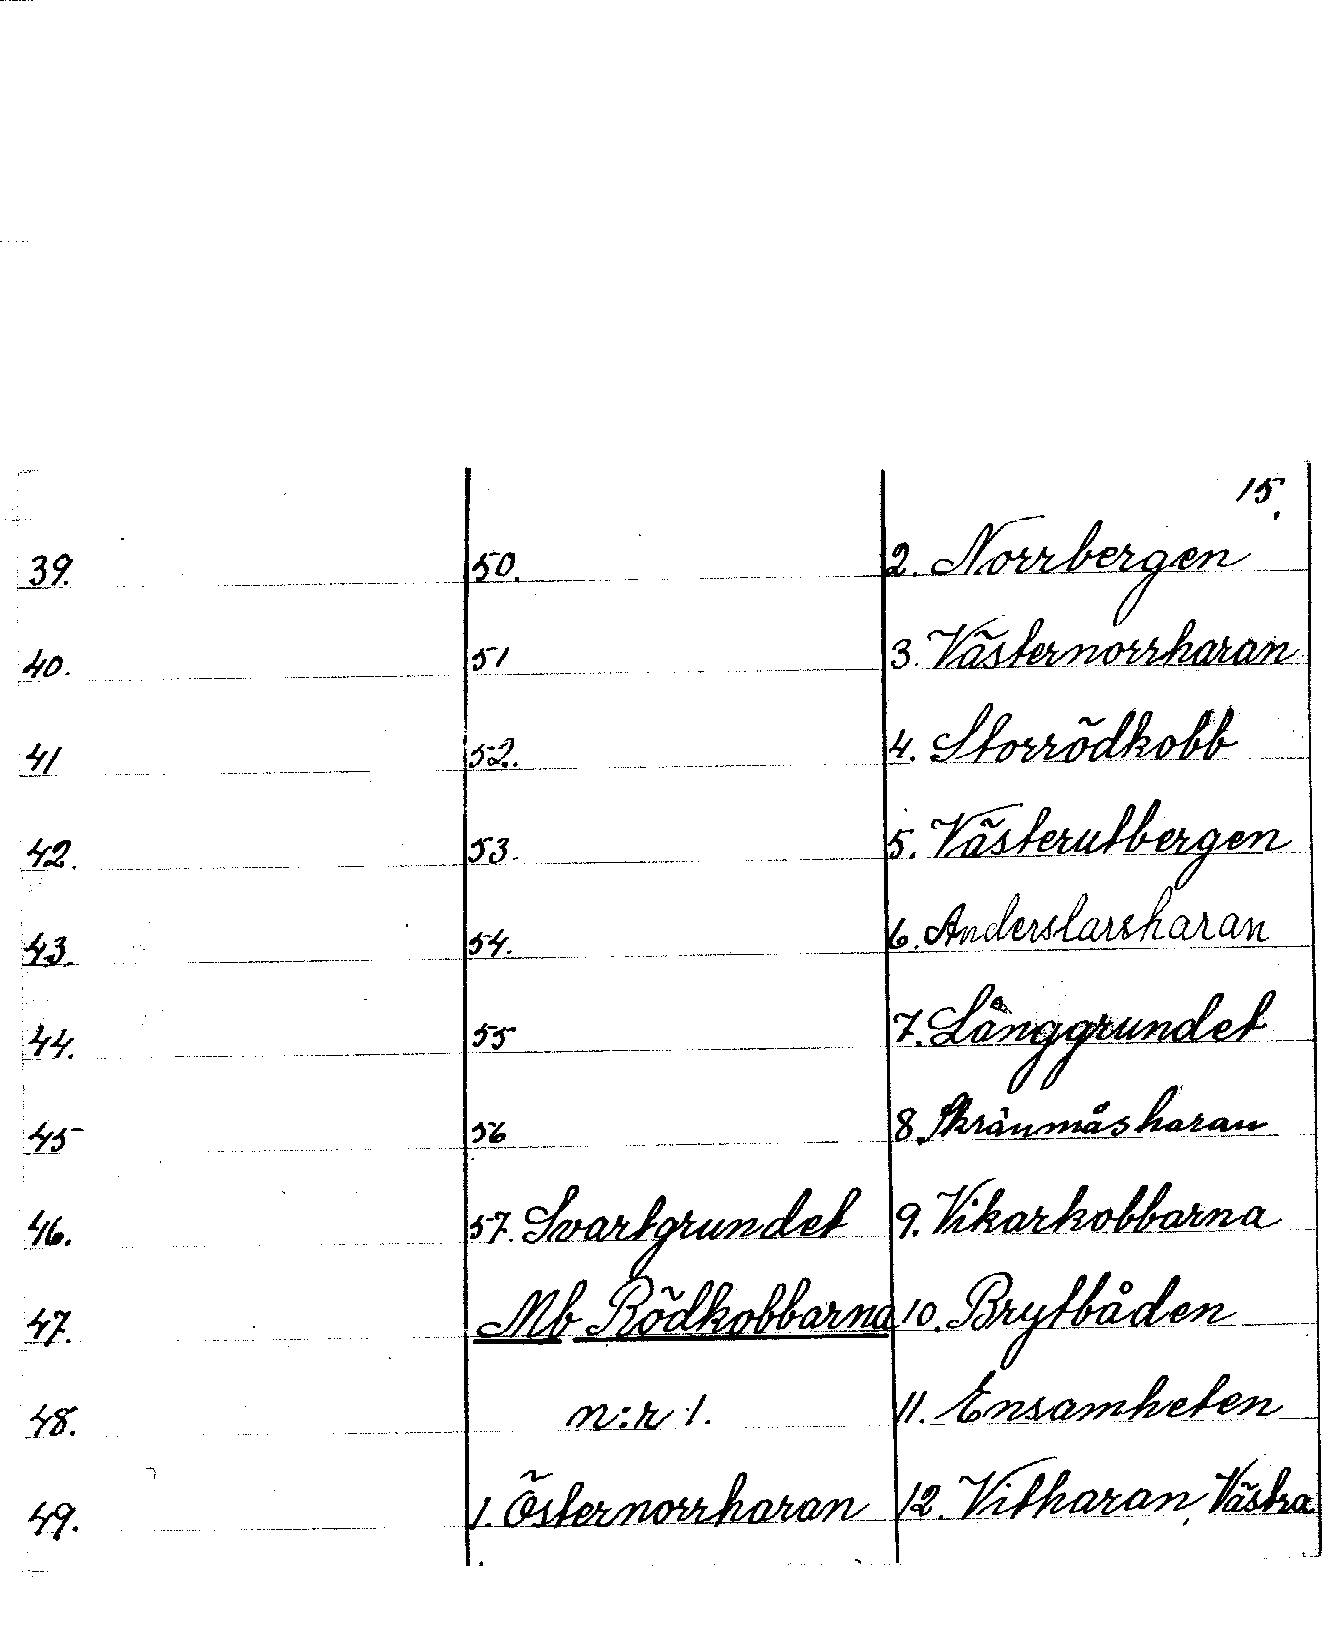 15.
39.
40.
41
42.
43.
44.
45
46.
47.
48.
49.
50.
51
52.
53.
54.
55
56
57. Svartgrundet
Mb Rödkobbarna
n:r 1.
1. Östernorrharan
2. Norrbergen
3. Västernorrharan
4. Storrödkobb
5. Västerutbergen
6. Anderslarsharan
7. Långgrundet
8 Skränmåsharan
9. Vikarkobbarna
10. Brytbåden
11. Ensamheten
12. Vitharan, Västra